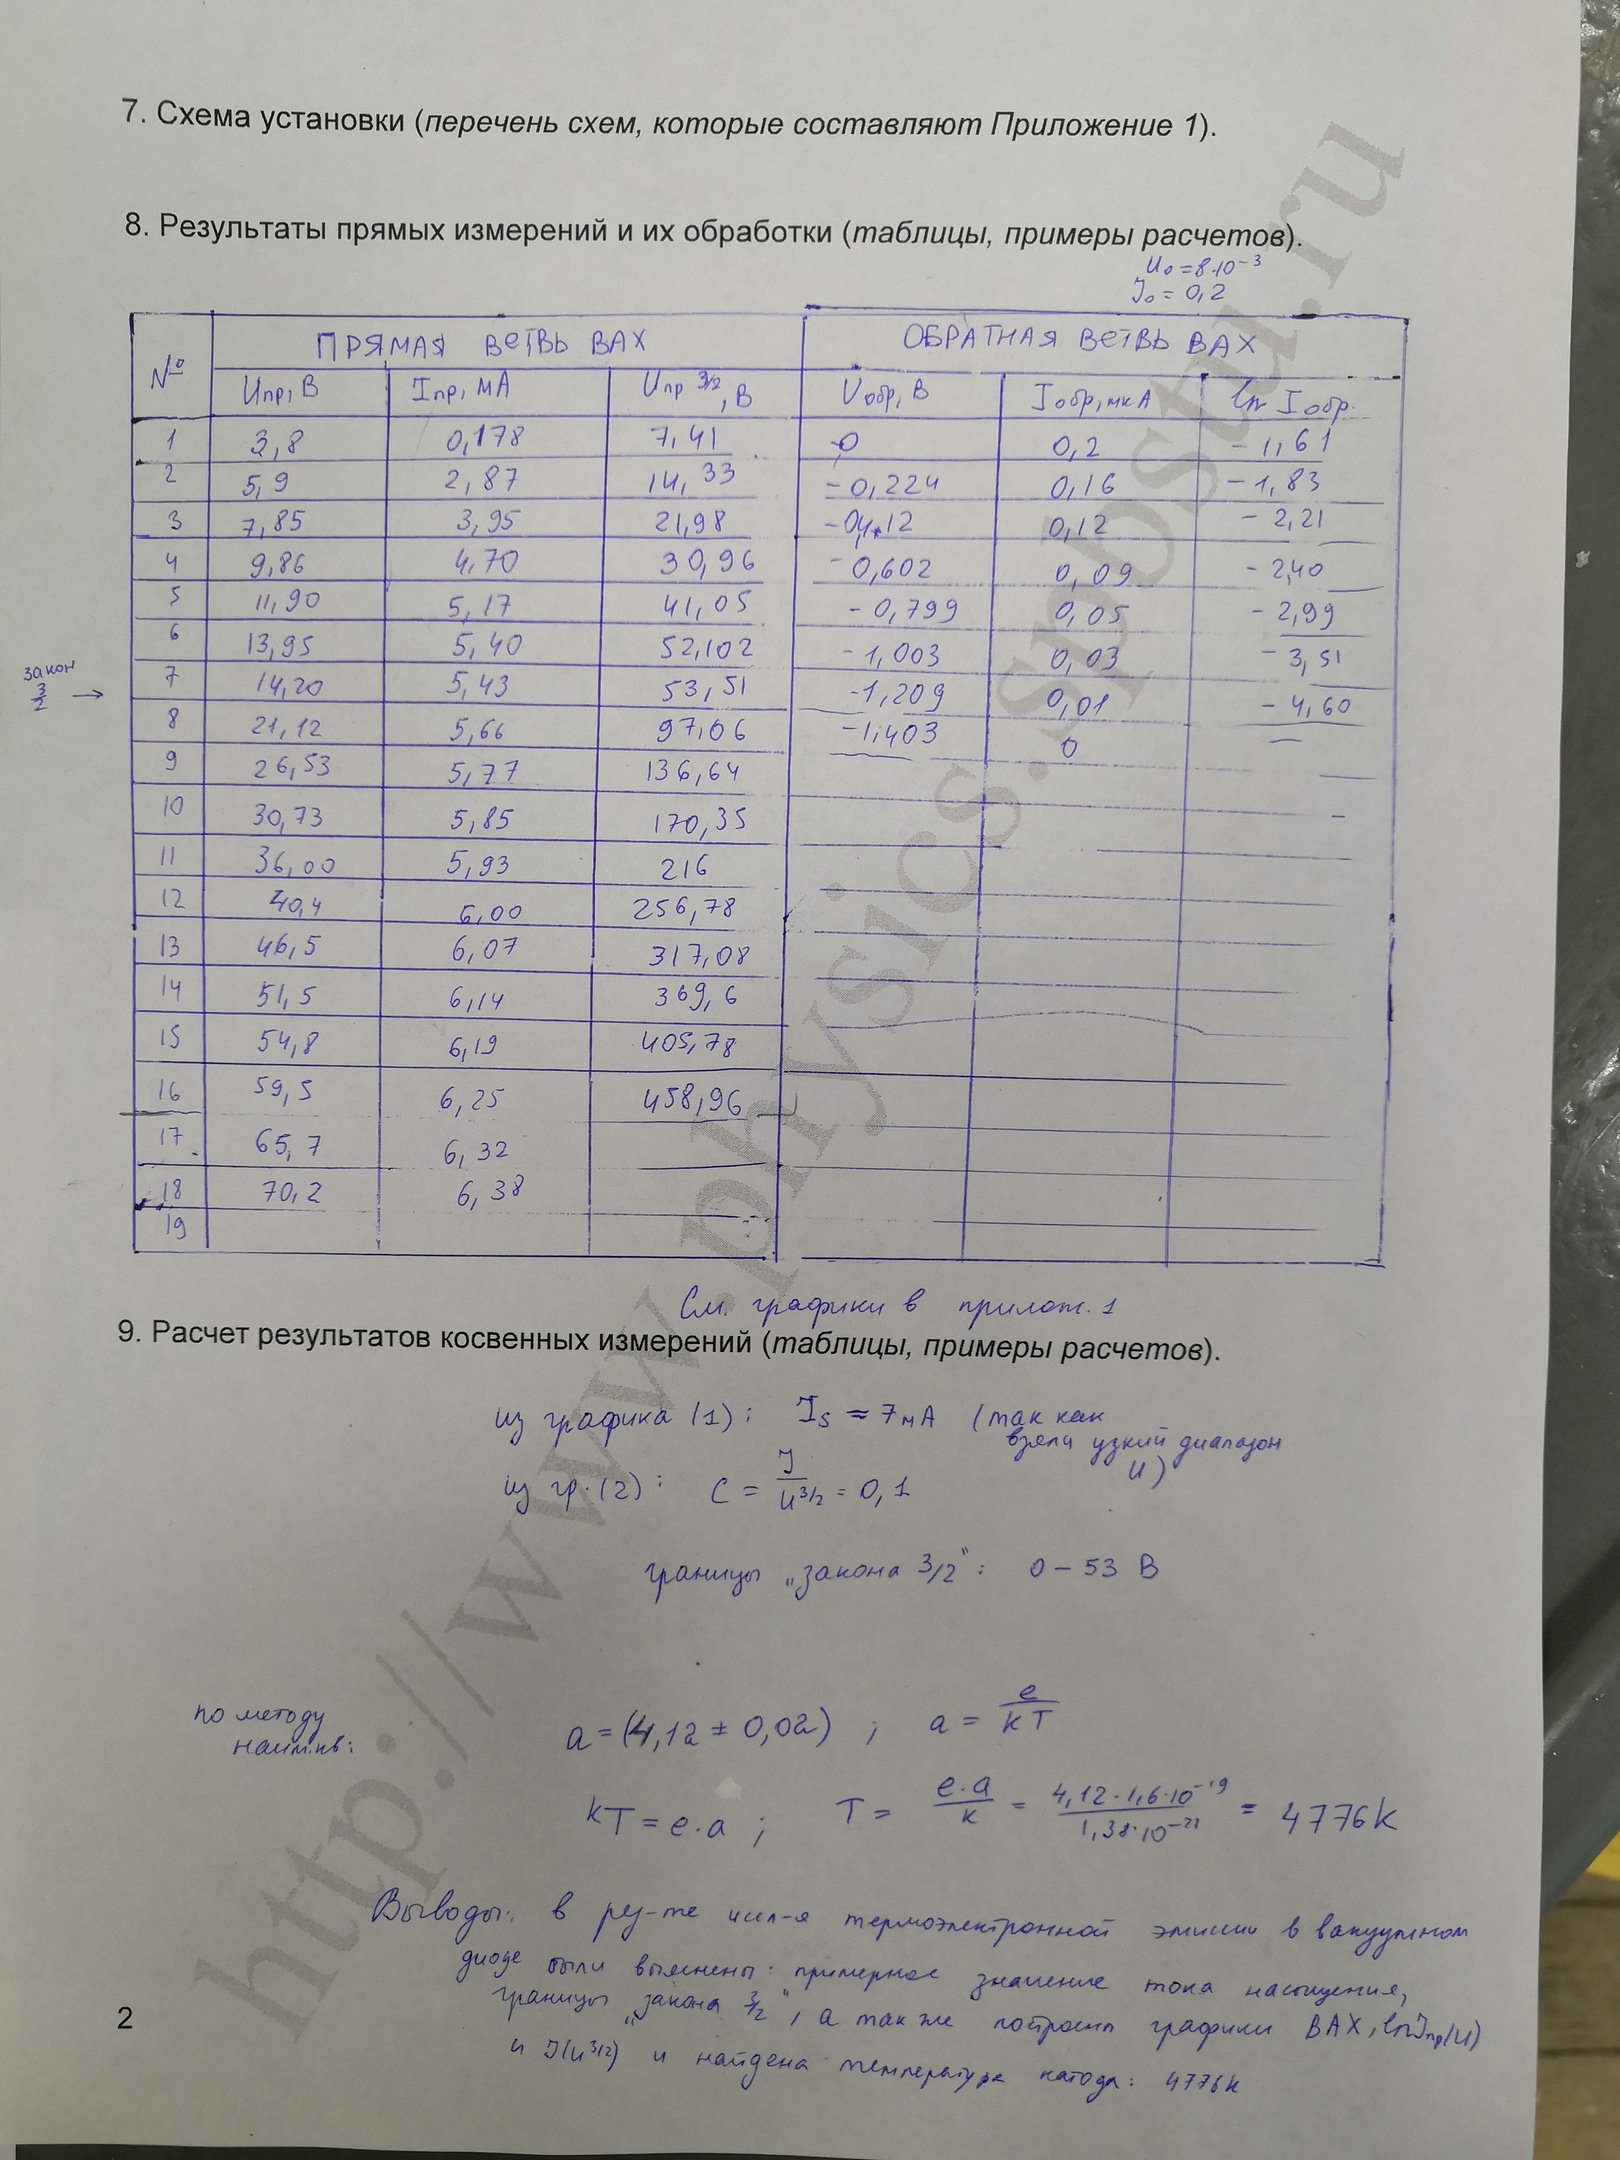 7. Схема установки (перечень схем, которые составляют Приложение 1).
8. Результаты прямых измерений и их обработки (таблицы, примеры расчетов).
U₀ = 8·10⁻³
J₀ = 0,2
№ ПРЯМАЯ ВЕТВЬ ВАХ ОБРАТНАЯ ВЕТВЬ ВАХ
Uпр, В Iпр, мА Uпр 3/2, В Uобр, В Iобр, мкА ln Iобр.
1 3,8 0,178 7,41 -0 0,2 -1,61
2 5,9 2,87 14,33 -0,224 0,16 -1,83
3 7,85 3,95 21,98 -0,412 0,12 -2,21
4 9,86 4,70 30,96 -0,602 0,09 -2,40
5 11,90 5,17 41,05 -0,799 0,05 -2,99
6 13,95 5,40 52,102 -1,003 0,03 -3,51
закон 3/2 →
7 14,20 5,43 53,51 -1,209 0,01 -4,60
8 21,12 5,66 97,06 -1,403 0 —
9 26,53 5,77 136,64
10 30,73 5,85 170,35
11 36,00 5,93 216
12 40,4 6,00 256,78
13 46,5 6,07 317,08
14 51,5 6,14 369,6
15 54,8 6,19 405,78
16 59,5 6,25 458,96
17 65,7 6,32
18 70,2 6,38
19
См. графики в прилож. 1
9. Расчет результатов косвенных измерений (таблицы, примеры расчетов).
из графика (1): Is ≈ 7мА (так как
взяли узкий диапазон
U)
из гр. (2): C = J/U^3/2 = 0,1
границы „закона 3/2": 0 – 53 В
по методу
наим.кв:
a = (4,12 ± 0,02) ; a = e/kT
kT = e·a ; T = e·a/k = 4,12·1,6·10⁻¹⁹/1,38·10⁻²³ = 4776K
Выводы: в рез-те исл-я термоэлектронной эмиссии в вакуумном
диоде были выяснены: примерное значение тока насыщения,
границы „закона 3/2", а также построены графики ВАХ, lnJпр(U)
и J(U^3/2) и найдена температура катода: 4776K
2
http://www.physics.spbstu.ru